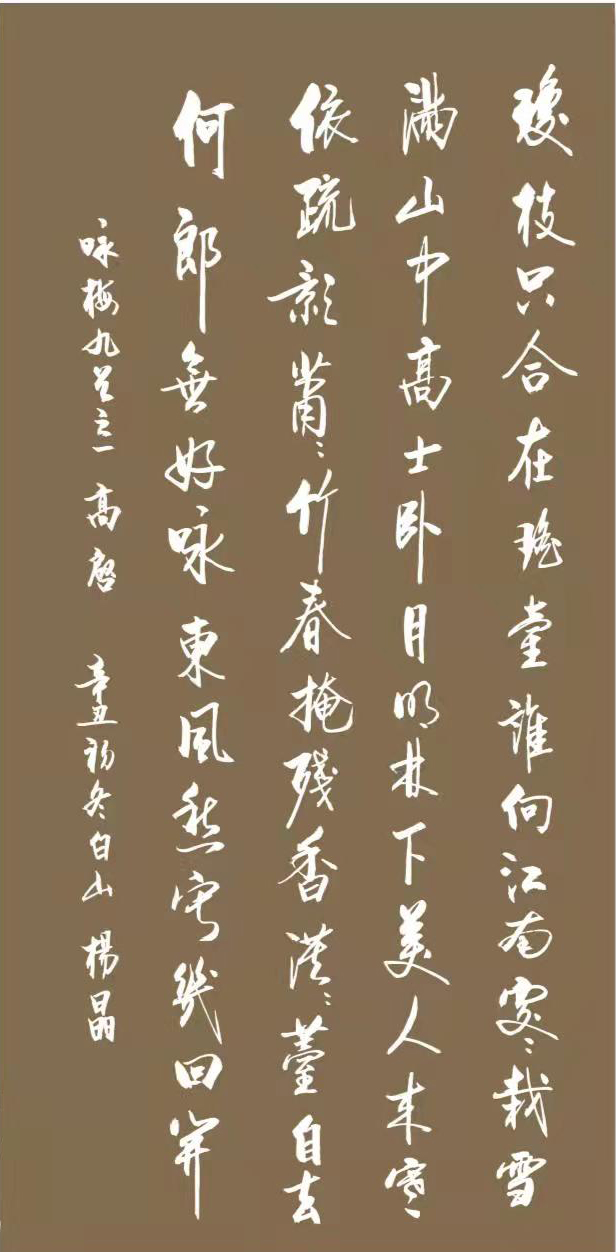 瓊枝只合在瑤臺誰向江南處〻栽雪
滿山中髙士卧月明林下美人来寒
依疏影蕭〻竹春掩殘香漠〻薹自去
何郎無好咏東風愁寂幾回開
咏梅九首之一 髙啓 辛丑初冬白山 楊晶